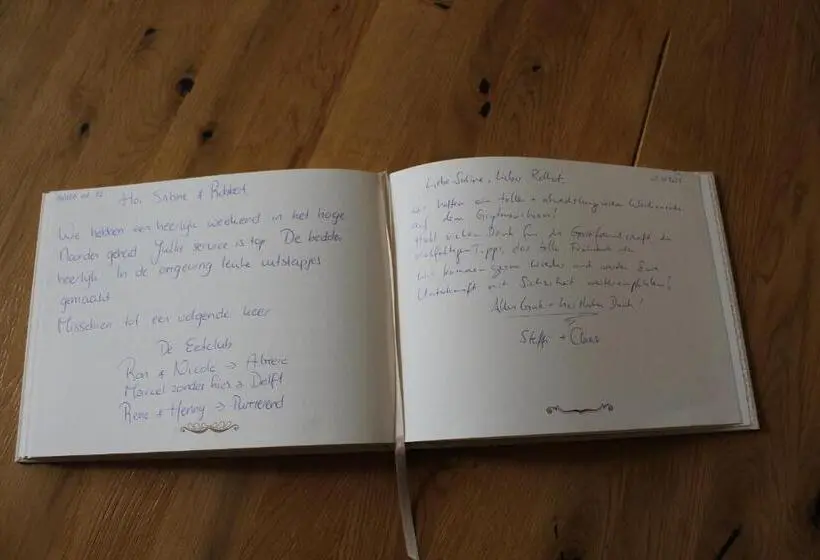 Hoi, Sabine &
We hebben een heerlijk weekend in het hoge
Noorden gehad Jullie service is top De bedden
heerlijk In de omgeving leuke uitstapjes
gemaakt
Misschien tot een volgende keer
De Eetclub
Ron & Nicole → Almere
Marcel zonder → Delft
Rene & Henny → Purmerend
Liebe Sabine, lieber
wir hatten ein tolles + Wochenende
auf dem
Habt vielen Dank für die Gastfreundschaft, die
vielfältigen Tipps, das tolle Frühstück
Wir kommen gerne wieder und werden Eure
Unterkunft mit Sicherheit weiterempfehlen!
Alles Gute + bis Dank!
Steffi + Claus